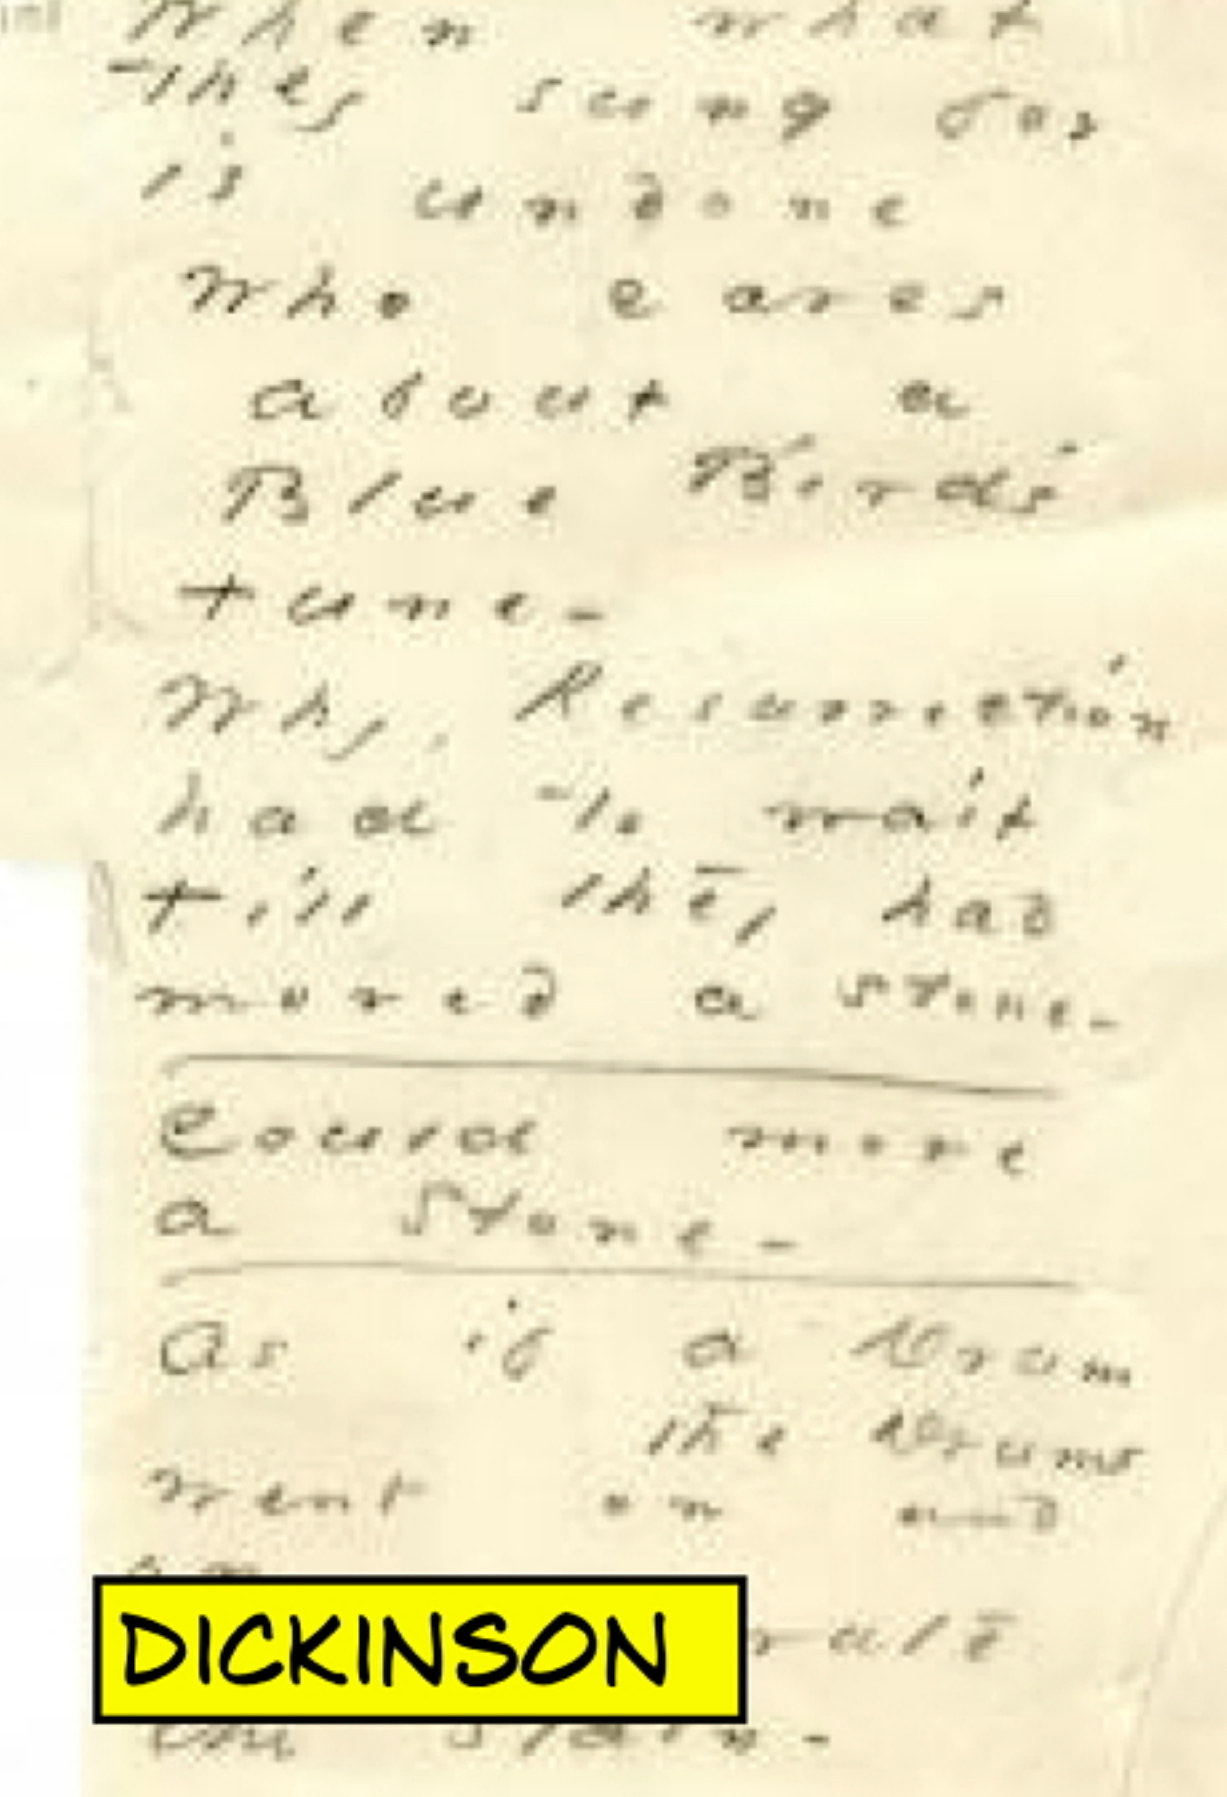 When what
they sung for
is undone
Who cares
about a
Blue Bird's
tune -
Why, Resurrection
had to wait
till they had
moved a stone -
Could move
a stone -
As if a Drum
the Drums
went on and
on
DICKINSON
the slain -